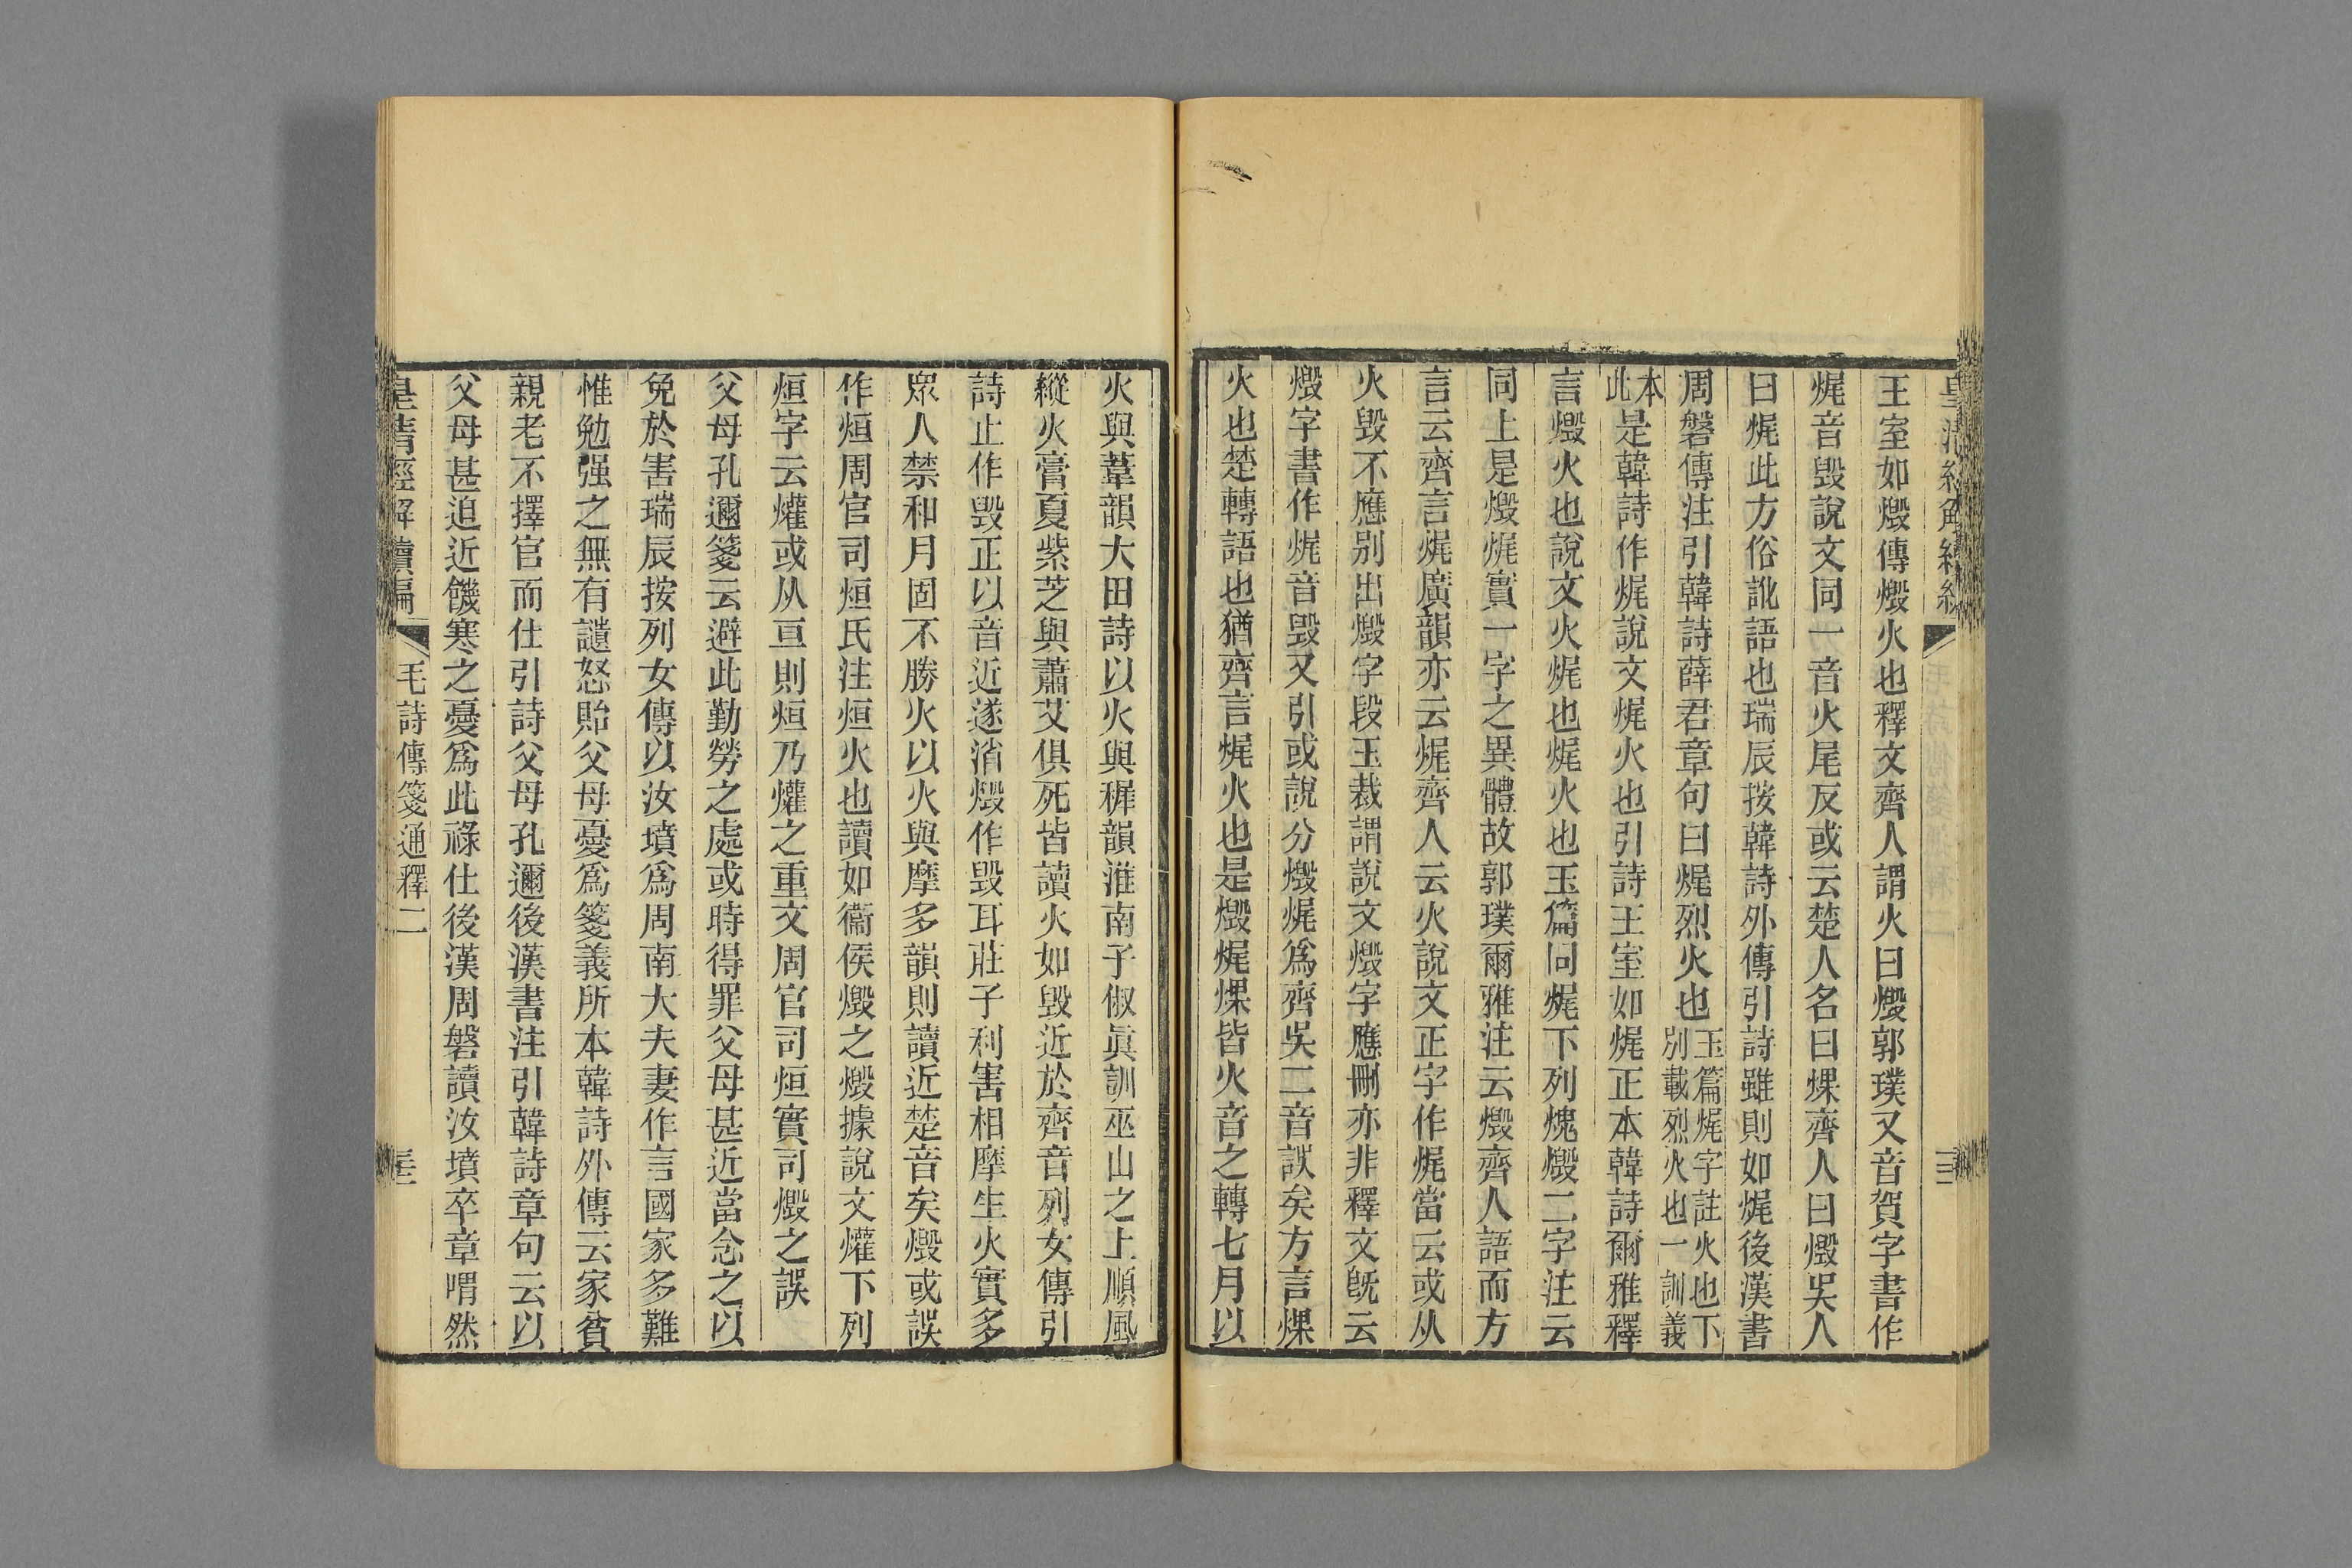 王室如燬傳燬火也釋文齊人謂火曰燬郭璞又音貨字書作
㷄音毀說文同一音火尾反或云楚人名曰煤齊人曰燬吳人
曰㷄此方俗訛語也瑞辰按韓詩外傳引詩雖則如㷄後漢書
周磐傳注引韓詩薛君章句曰㷄烈火也玉篇㷄字註火也下別載烈火也一訓義
本此是韓詩作㷄說文㷄火也引詩王室如㷄正本韓詩爾雅釋
言燬火也說文火㷄也㷄火也玉篇同㷄下列㷇燬二字注云
同上是燬㷄實一字之異體故郭璞爾雅注云燬齊人語而方
言云齊言㷄廣韻亦云㷄齊人云火說文正字作㷄當云或从
火毀不應別出燬字段玉裁謂說文燬字應刪亦非釋文既云
燬字書作㷄音毀又引或說分燬㷄爲齊吳二音誤矣方言煤
火也楚轉語也猶齊言㷄火也是燬㷄煤皆火音之轉七月以
火與葦韻大田詩以火與穉韻淮南子俶眞訓巫山之上順風
縱火膏夏紫芝與蕭艾俱死皆讀火如毀近於齊音列女傳引
詩止作毀正以音近遂消燬作毀耳莊子利害相摩生火實多
眾人禁和月固不勝火以火與摩多韻則讀近楚音矣燬或誤
作烜周官司烜氏注烜火也讀如衞侯燬之燬據說文爟下列
烜字云爟或从亘則烜乃爟之重文周官司烜實司燬之誤
父母孔邇箋云避此勤勞之處或時得罪父母甚近當念之以
免於害瑞辰按列女傳以汝墳爲周南大夫妻作言國家多難
惟勉强之無有譴怒貽父母憂爲箋義所本韓詩外傳云家貧
親老不擇官而仕引詩父母孔邇後漢書注引韓詩章句云以
父母甚迫近饑寒之憂爲此祿仕後漢周磐讀汝墳卒章喟然
皇清經解續編 毛詩傳箋通釋二